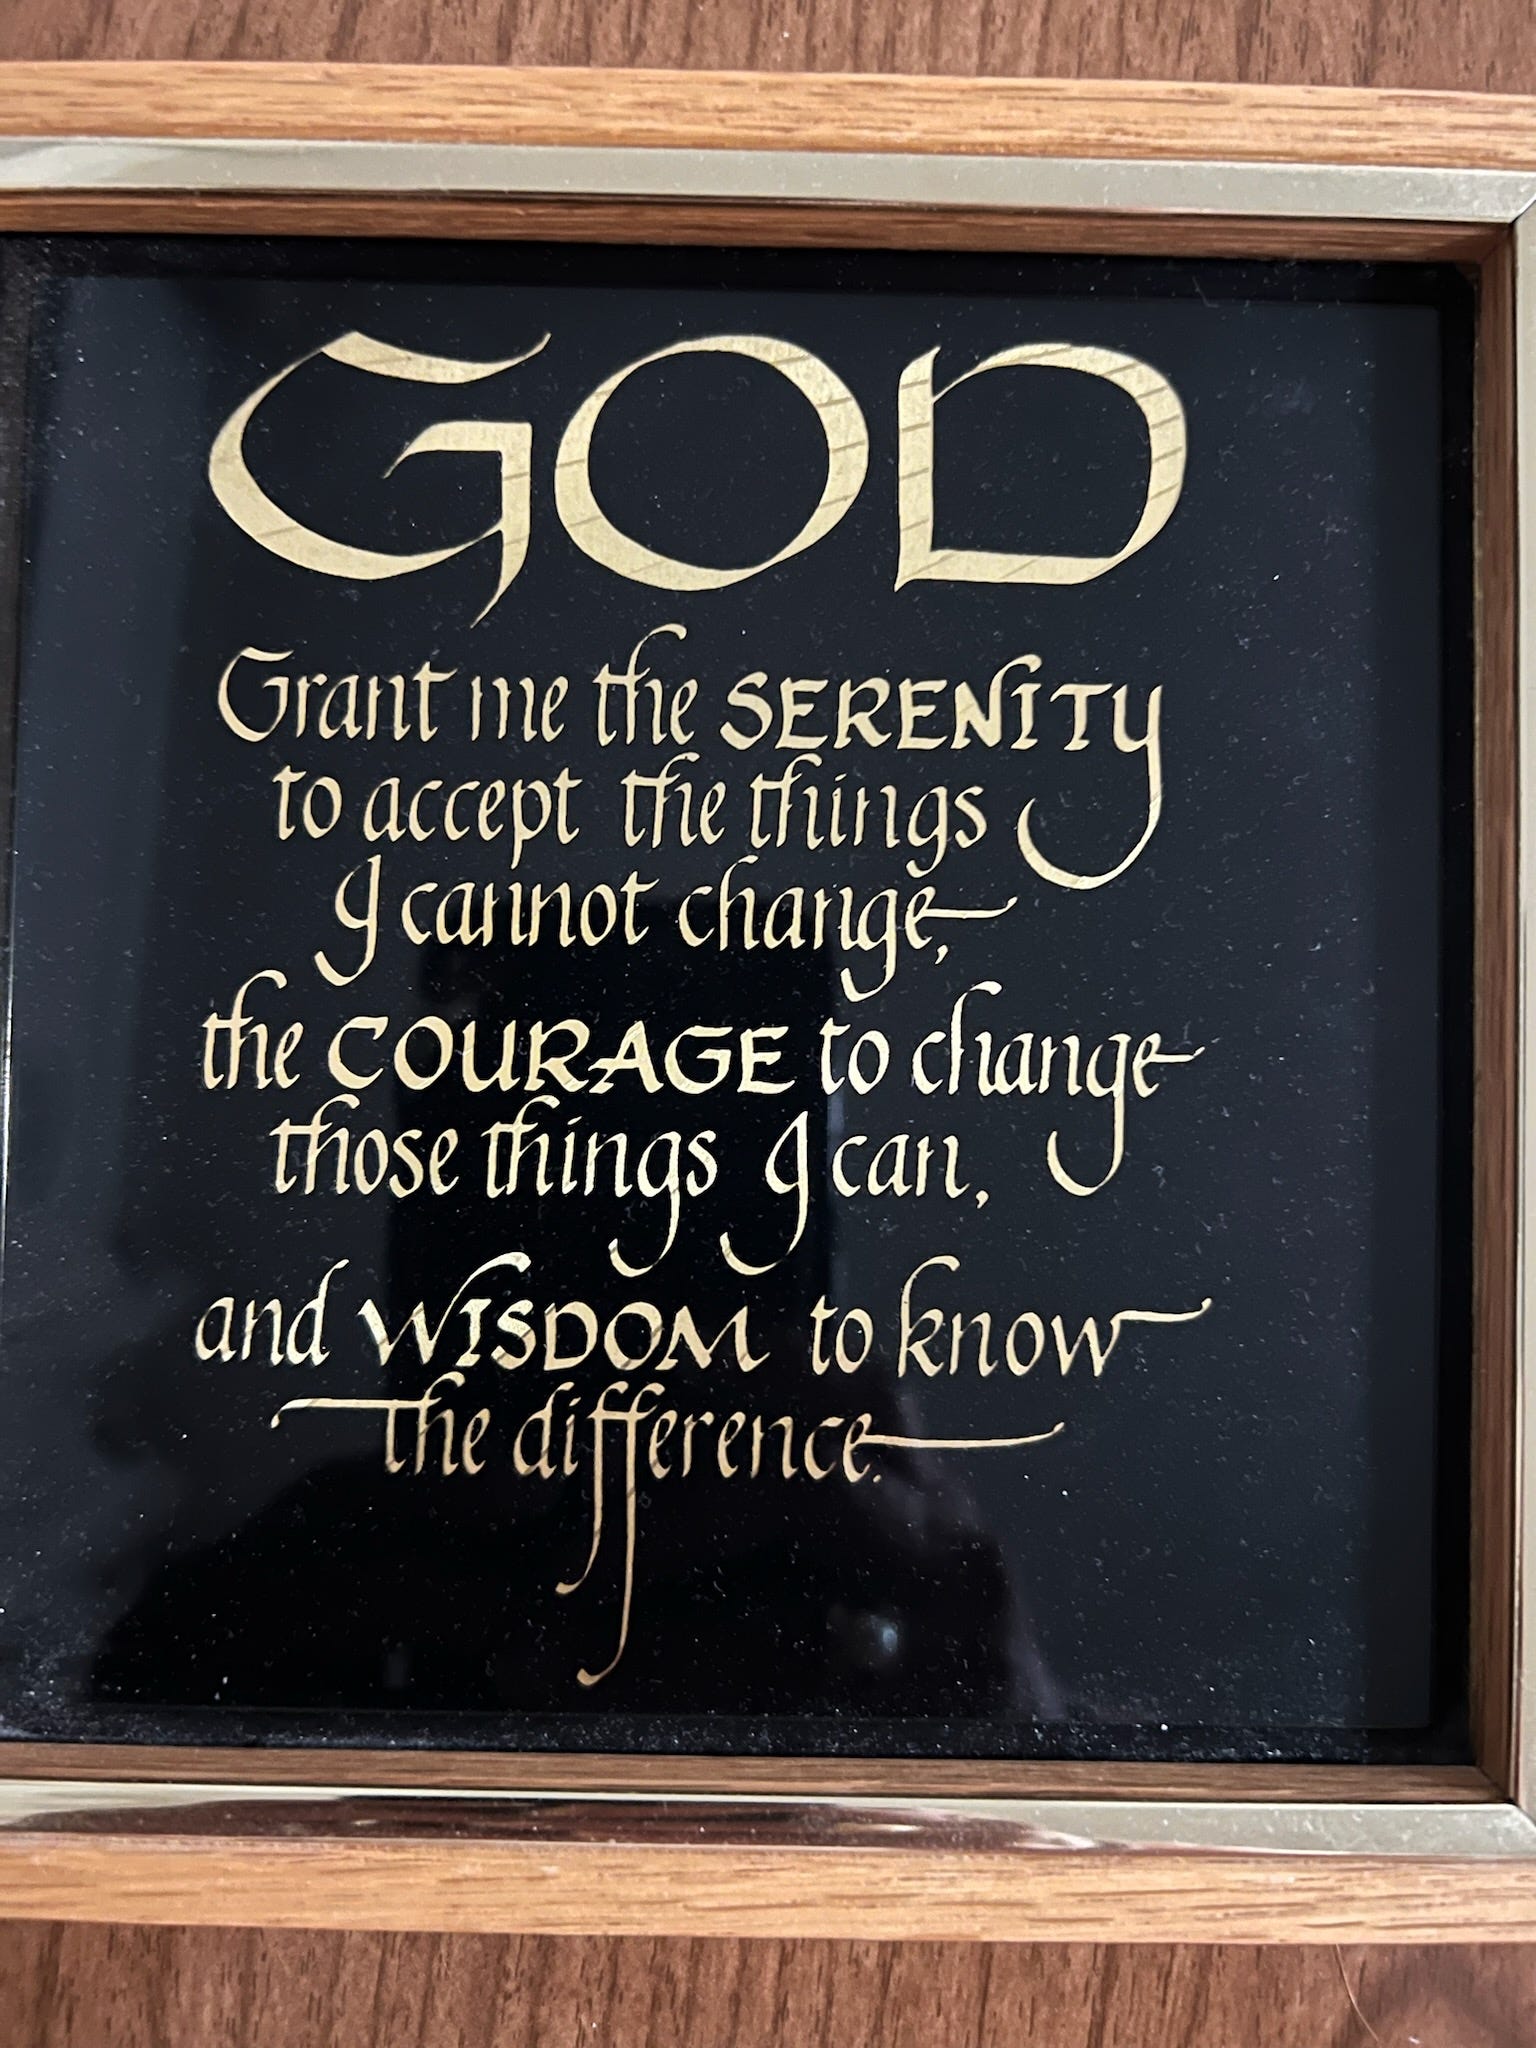 GOD
Grant me the SERENITY
to accept the things
I cannot change,
the COURAGE to change
those things I can,
and WISDOM to know
the difference.